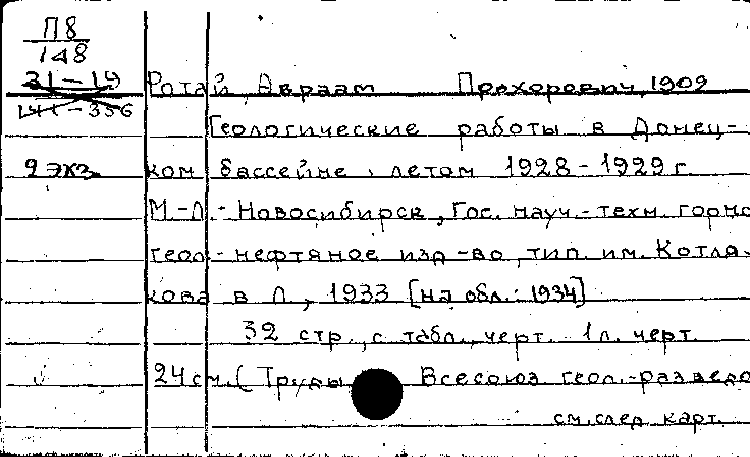 П8
148
31-19
141-336
2 экз.
Ротай, Авраам Прохорович, 1909
Геологические работы в Донец-
ком бассейне, летом 1928-1929 г.
М-Л.-Новосибирск, Гос. науч.-техн. горно
геол-нефтяное изд-во, тип. им. Котля-
кова в Л, 1933 [на обл.: 1934]
32 стр., с табл., черт. 1л. черт.
24см. (Труды Всесоюз геол.-разведо
см. след. карт.